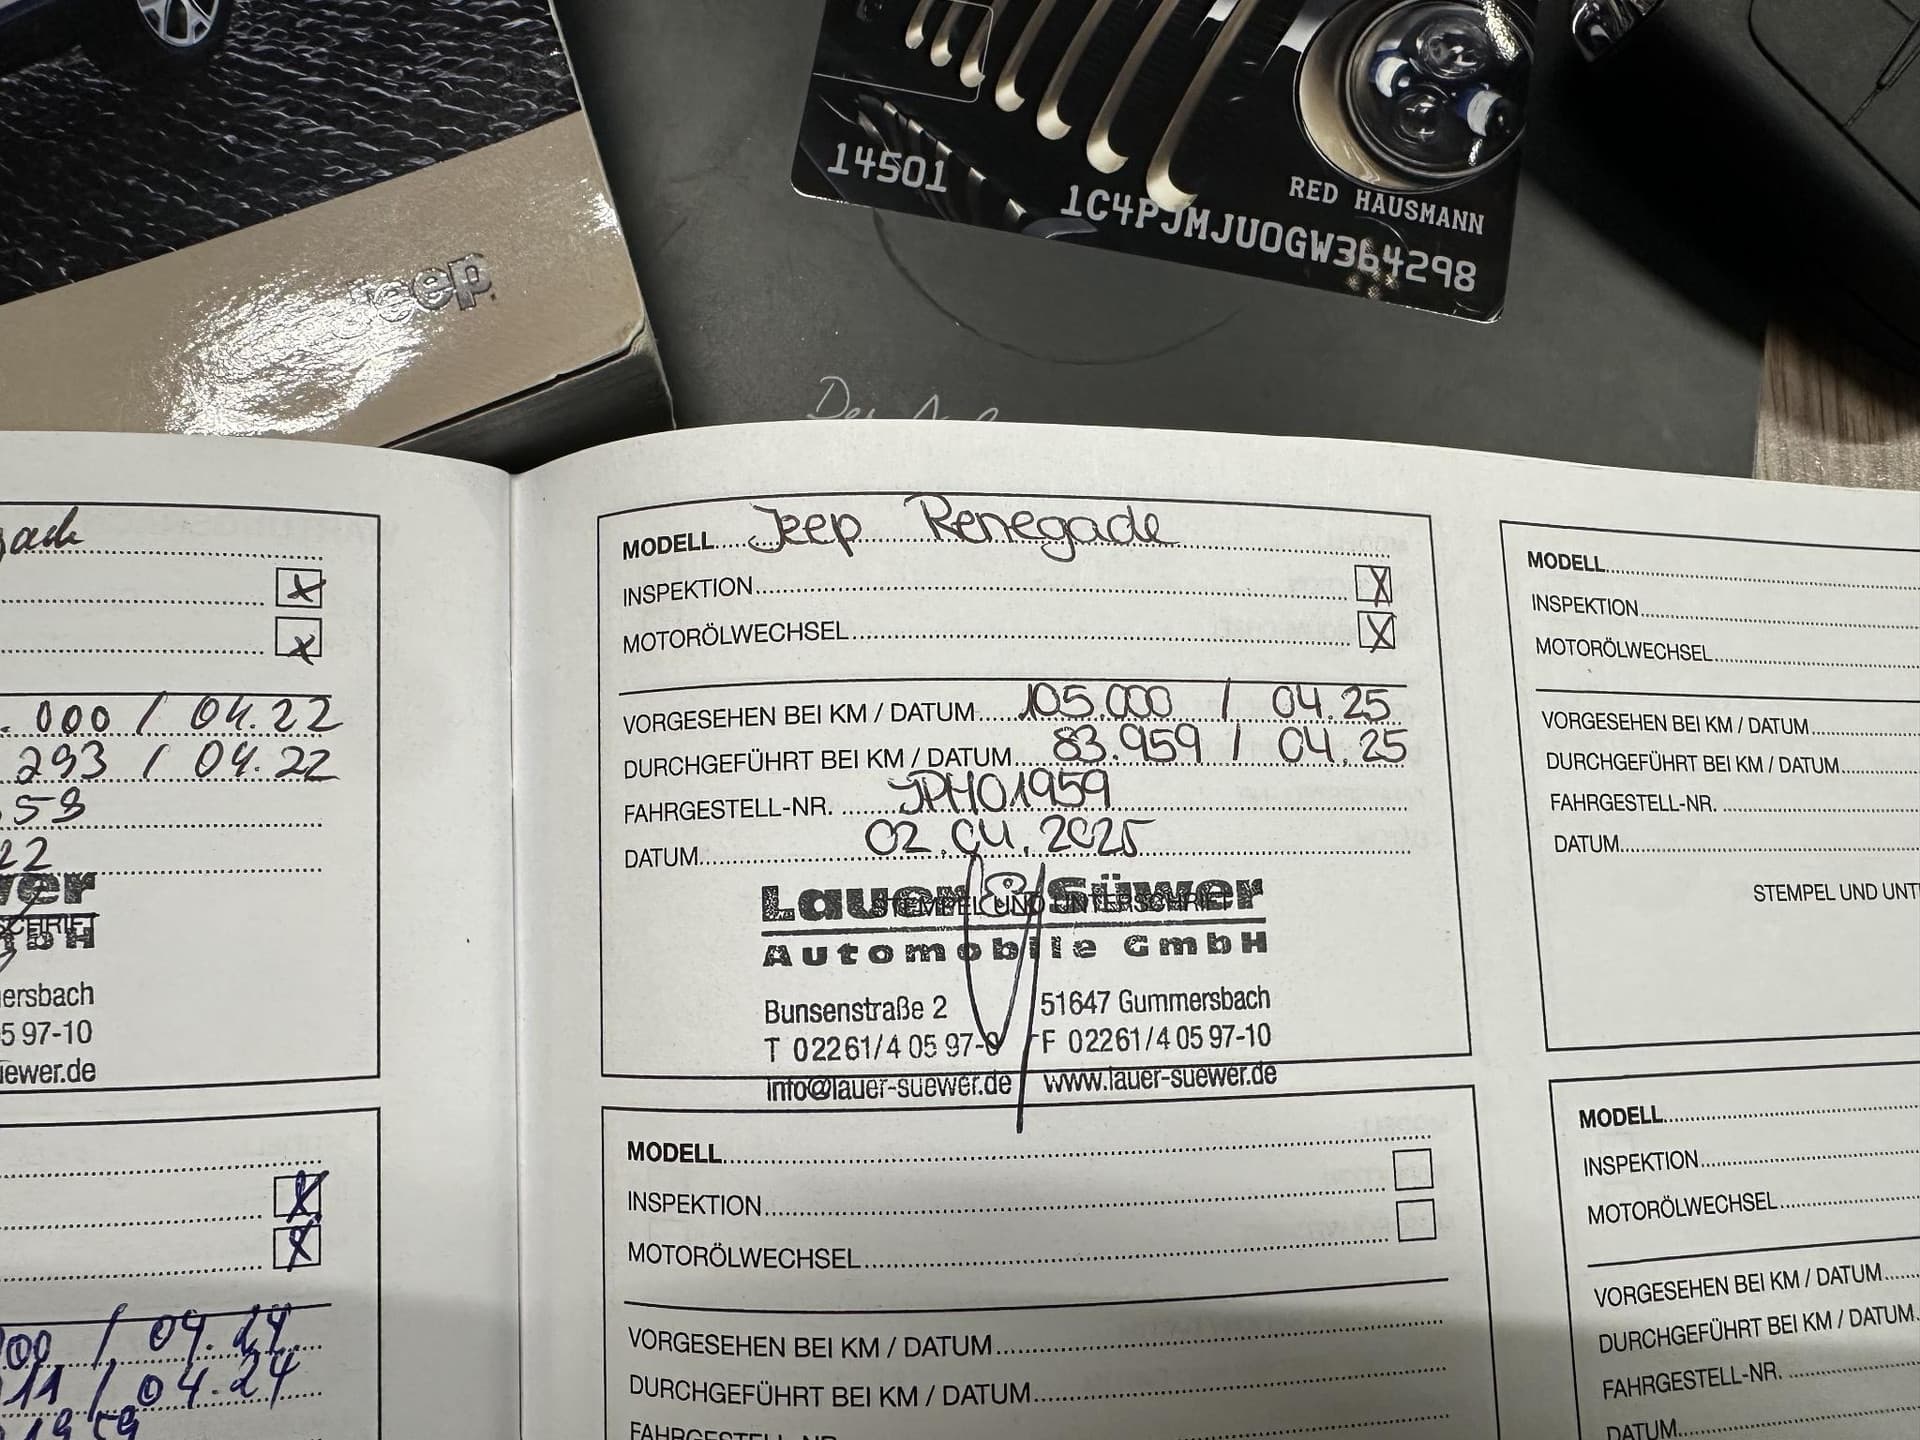 Jeep
14501
RED HAUSMANN
1C4PJMJU0GW364298
MODELL Jeep Renegade
INSPEKTION X
MOTORÖLWECHSEL X
VORGESEHEN BEI KM / DATUM 105.000 / 04.25
DURCHGEFÜHRT BEI KM / DATUM 83.959 / 04.25
FAHRGESTELL-NR. JPH01959
DATUM 02.04.2025
STEMPEL UND UNTERSCHRIFT
Lauer & Süwer
Automobile GmbH
Bunsenstraße 2 51647 Gummersbach
T 02261/4 05 97-0 F 02261/4 05 97-10
info@lauer-suewer.de www.lauer-suewer.de
MODELL
INSPEKTION
MOTORÖLWECHSEL
VORGESEHEN BEI KM / DATUM
DURCHGEFÜHRT BEI KM / DATUM
FAHRGESTELL-NR.
X
X
000 / 04.22
293 / 04.22
GmbH
97-10
X
X
/ 04.24
11 / 04.24
MODELL
INSPEKTION
MOTORÖLWECHSEL
VORGESEHEN BEI KM / DATUM
DURCHGEFÜHRT BEI KM / DATUM
FAHRGESTELL-NR.
DATUM
STEMPEL UND
MODELL
INSPEKTION
MOTORÖLWECHSEL
VORGESEHEN BEI KM / DATUM
DURCHGEFÜHRT BEI KM / DATUM
FAHRGESTELL-NR.
DATUM